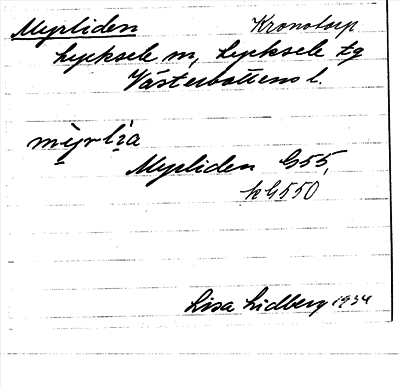 Myrliden Kronotorp
Lycksele sn, Lycksele tg
Västerbottens l.
mỳrlìa
Myrliden G55,
kG550
Lisa Lidberg 1934